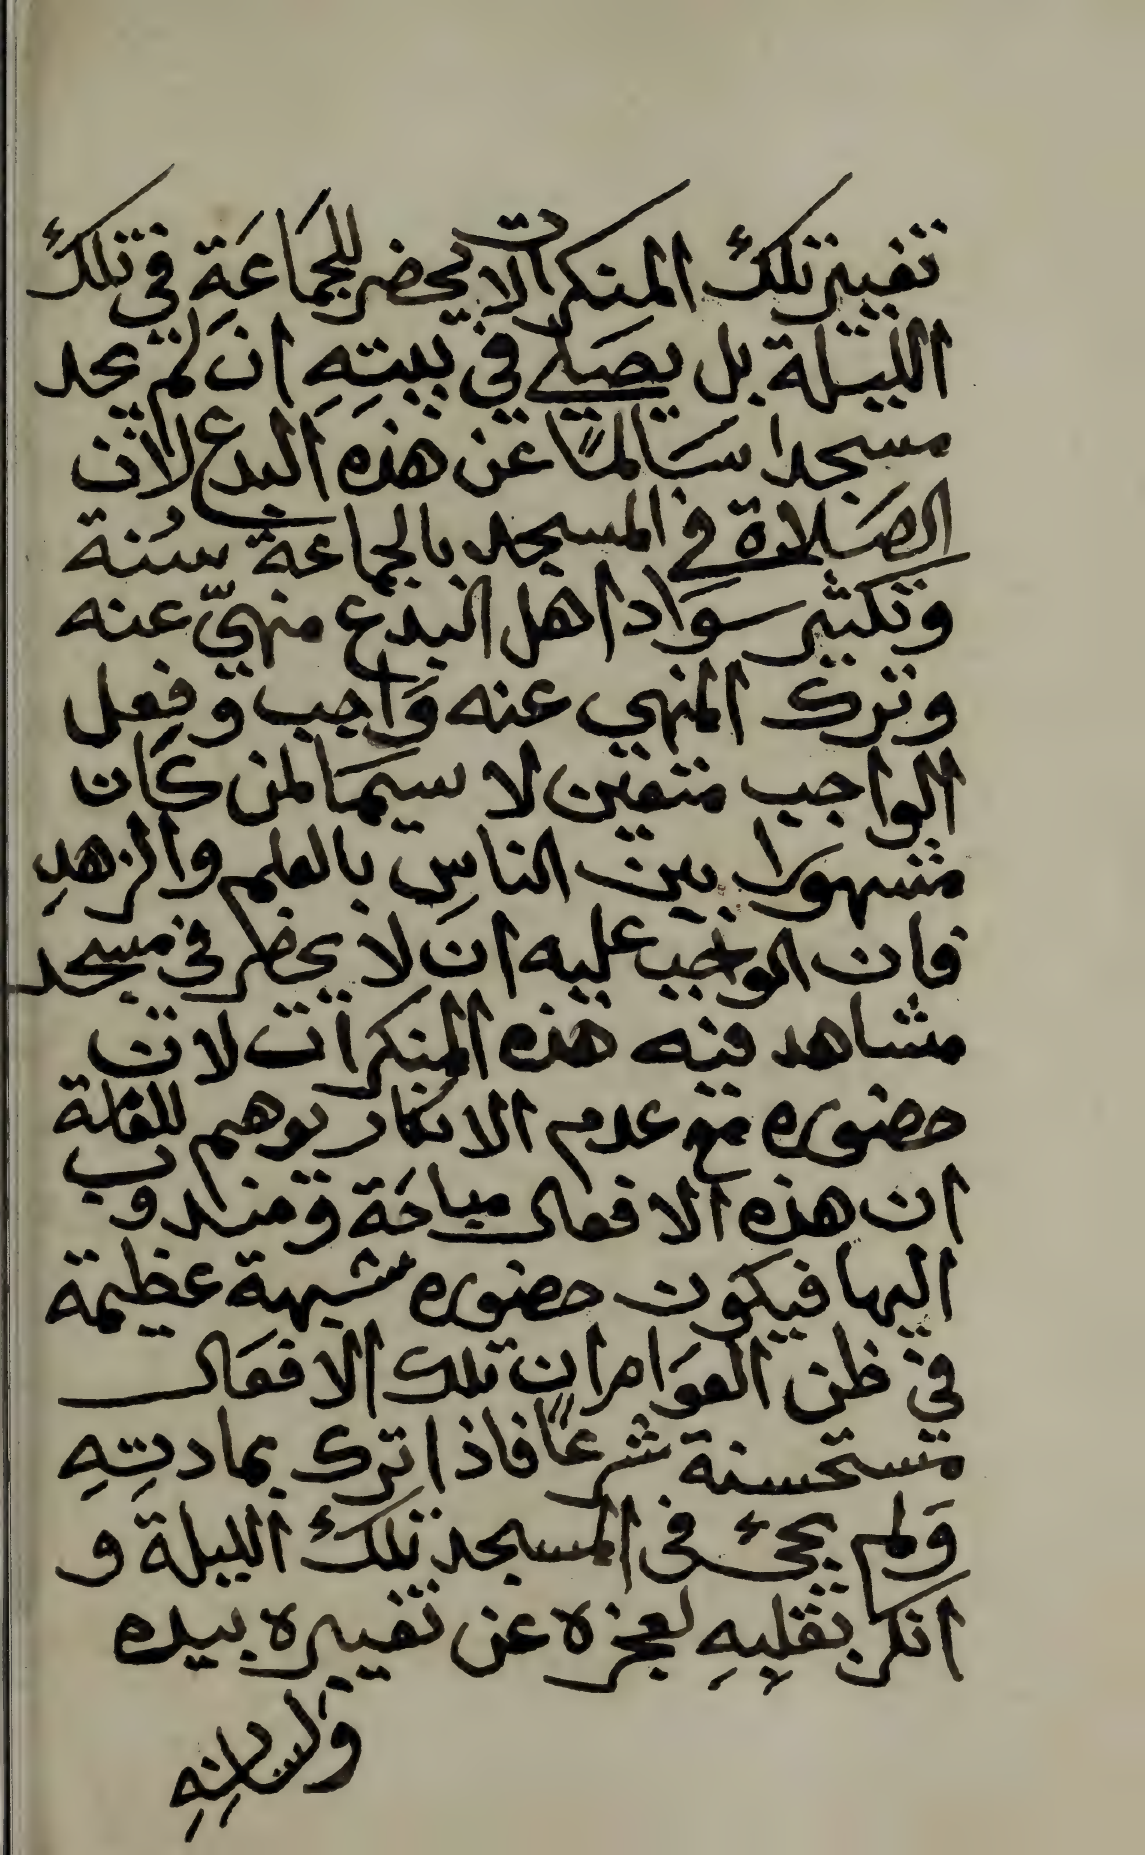 تغيير تلك المنكرات لا يحضر للجمَاعَة في تلك
الليلة بل يصَلي في بيتِهِ ان لم يجد
مسجدا سَالماً عن هذه البدع لان
الصَلاة في المسجد بالجماعة سُنة
وتكثير سوَاد اهل البدع منهيّ عنه
وترك المنهي عنه وَاجب وفِعل
الواجب متعين لا سيمَا لمن كان
مشهورا بين الناسِ بالعلم والزهدِ
فان الواجب عليه ان لا يحظر في مسجد
مشاهد فيه هذه المنكرات لان
حضوره مع عدم الانكار يوهم للعامة
ان هذه الافعال مباحَة ومندوب
اليها فيكون حضوره شبهة عظيمة
في ظن العوَام ان تلك الافعَال
مستحسنة شرعاً فاذا ترك بعادتِهِ
وَلم يجئ في المسجد تلك الليلة و
انكر بقلبِهِ لعجزه عن تغييره بيده
وَلسانِهِ